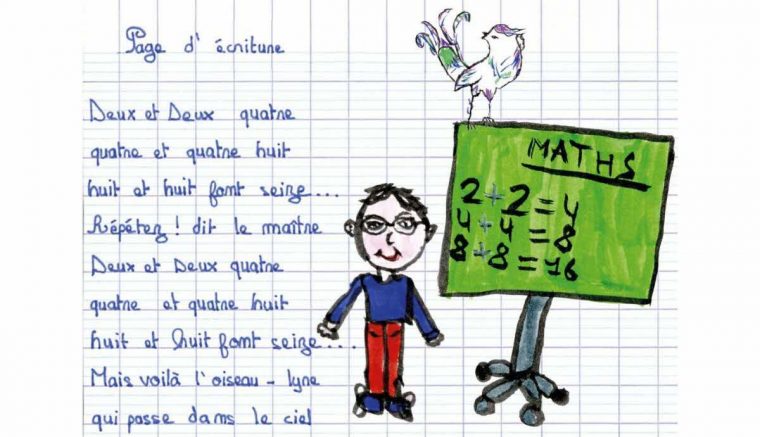 Page d'écriture
Deux et Deux quatre
quatre et quatre huit
huit et huit font seize...
Répétez ! dit le maître
Deux et Deux quatre
quatre et quatre huit
huit et huit font seize....
Mais voilà l'oiseau-lyre
qui passe dans le ciel
MATHS
2+2=4
4+4=8
8+8=16